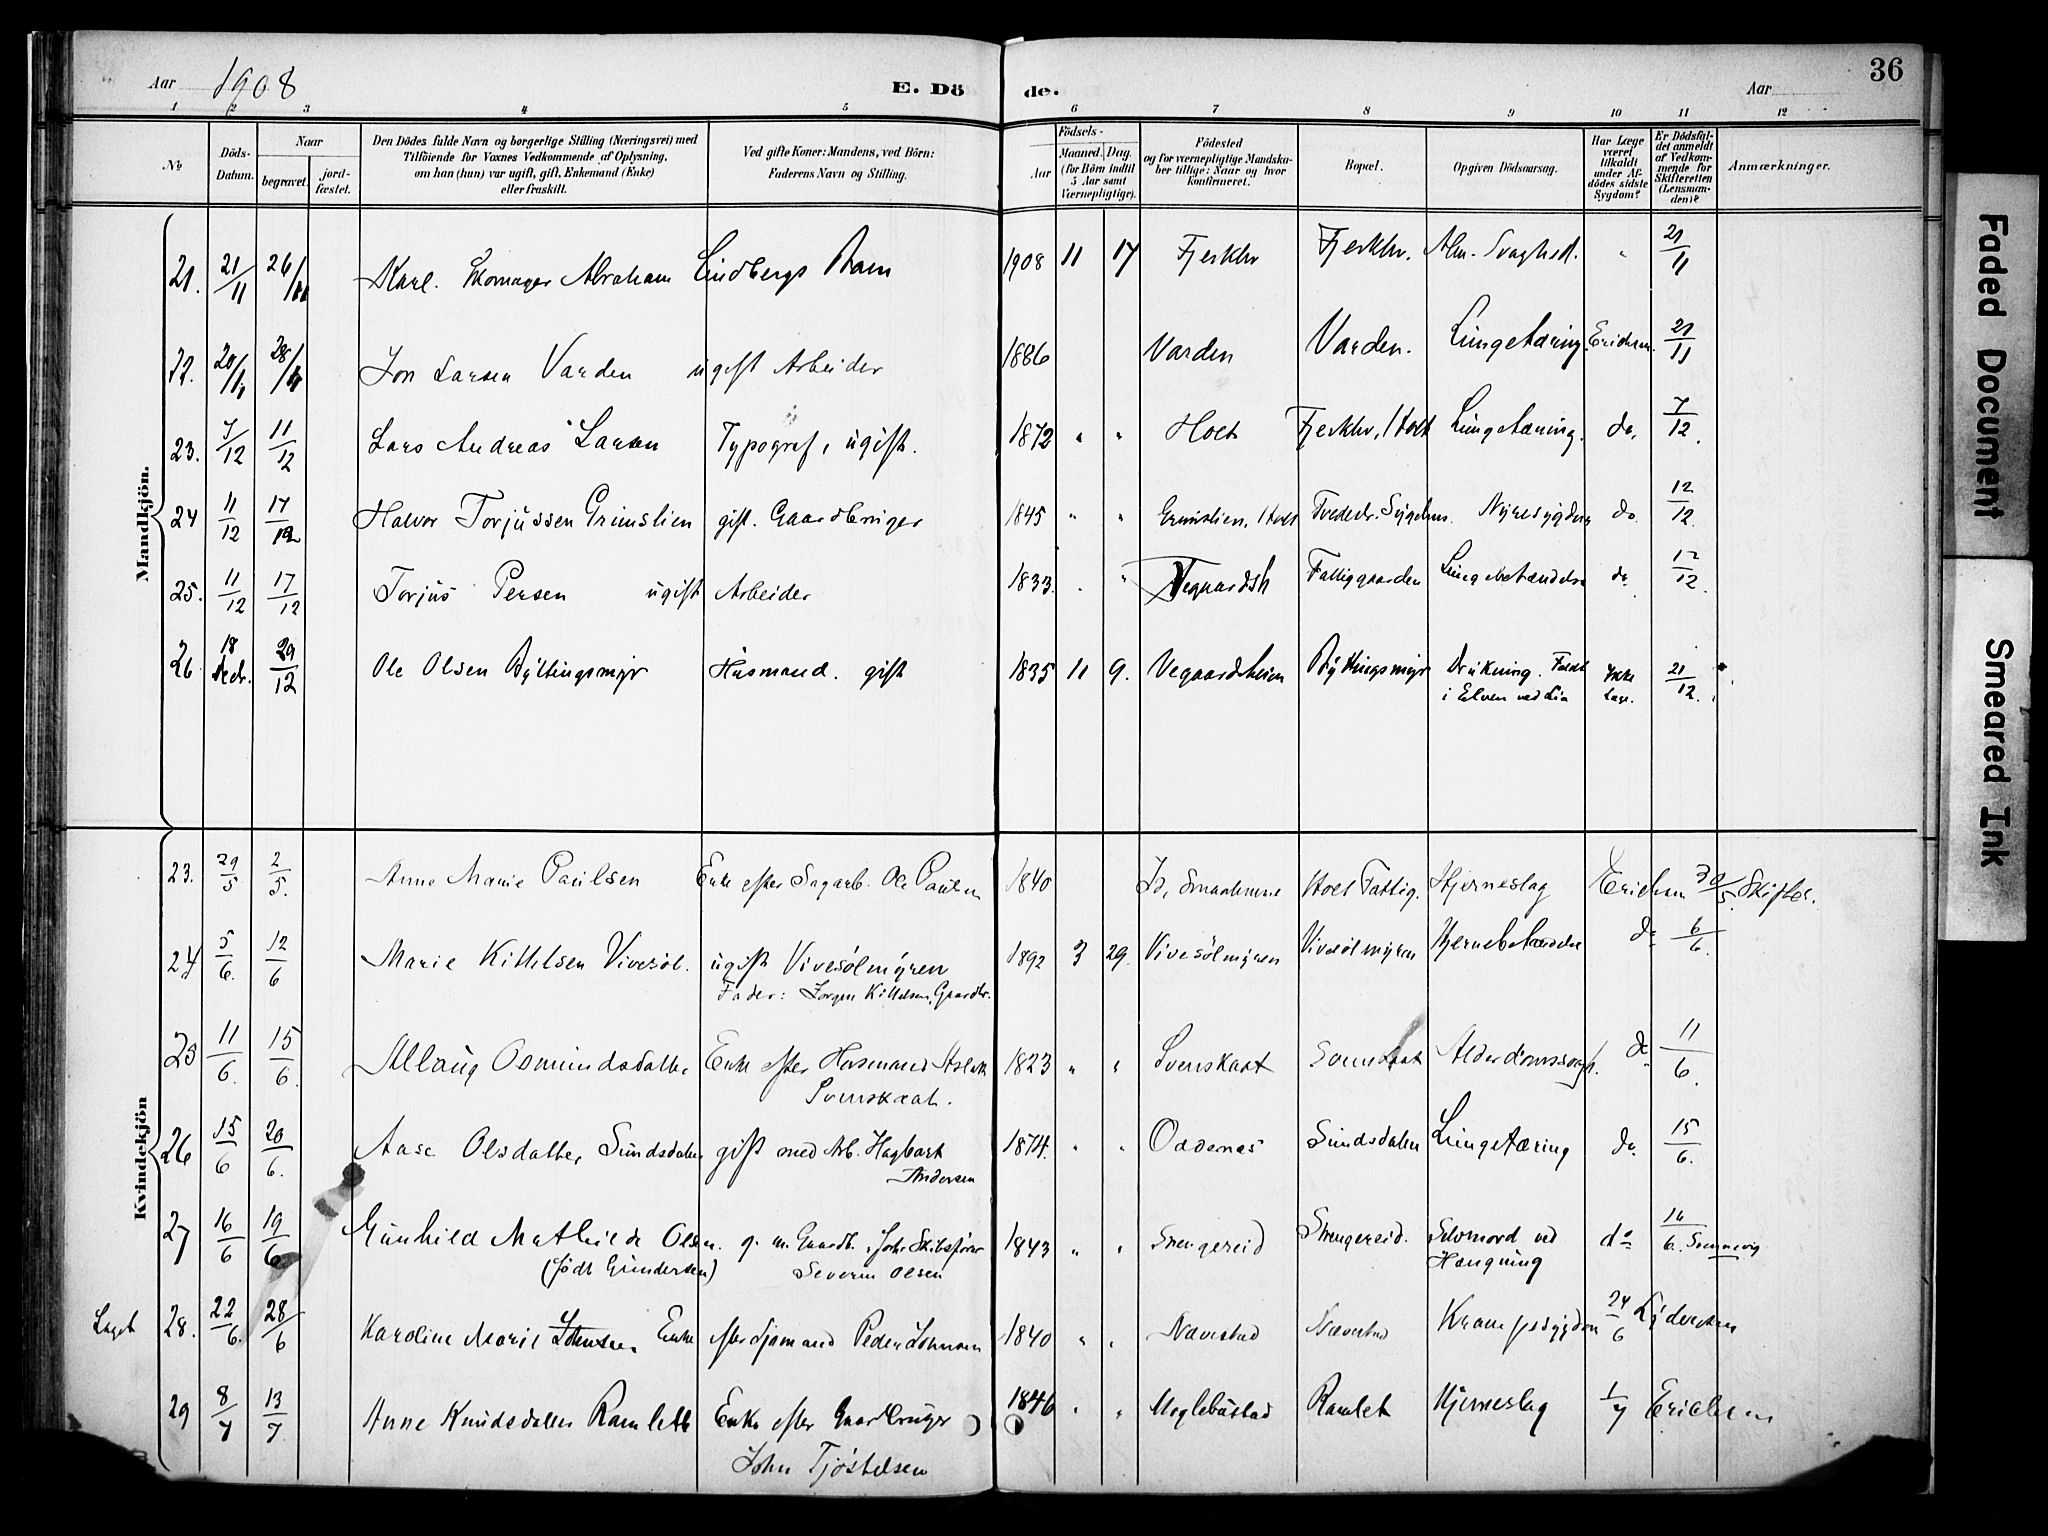 Aar 1908 E. Döde. Aar 36
1 2 3 4 5 6 7 8 9 10 11 12
No Döds-Datum. Naar begravet. jord-fæstet. Den Dödes fulde Navn og borgerlige Stilling (Næringsvei) med Tilföiende for Voxnes Vedkommende af Oplysning, om han (hun) var ugift, gift, Enkemand (Enke) eller fraskilt. Ved gifte Koner: Mandens, ved Börn: Faderens Navn og Stilling. Födsels- Aar Maaned. Dag. (for Börn indtil 5 Aar samt Værnepligtige). Födested og for værnepligtige Mandskaber tillige: Naar og hvor konfirmeret. Bopæl. Opgiven Dödsaarsag. Har Læge været tilkaldt under Afdödes sidste Sygdom? Er Dödsfaldet anmeldt af Vedkommende for Skifteretten (Lensmanden)? Anmærkninger.
Mandkjön.
21. 21/11 26/11 Karl. Skomager Abraham Lindbergs Barn 1908 11 17 Fjerkln Fjerkln. Alm. Svaghed. " 21/11
Jon Larsen Varden ugift Arbeider 1886 Varden Varden. Lungetæring. Erichsen. 21/11
23. 7/12 11/12 Lars Andreas Larsen Typograf, ugift. 1872 " " Holt Lungetæring. do. 7/12.
24 11/12 17/12 Halvor Torjussen Grimslien gift. Gaardbruger 1845 " " Grimslien, Holt Tvedestr. Sygehus. Nyresygdom do. 12/12.
25. 11/12 17/12 Torjus Persen ugift Arbeider 1833. " " Vegaardsh Fattiggaarden Lungebetændelse do. 12/12.
26. 18 Decbr. 29/12 Ole Olsen Byltingsmyr Husmand. gift 1835 11 9. Vegaardsheien Byltingsmyr Drukning. Faldt
i Elven ved Lia Ikke Læge. 21/12.
Kvindekjön
23. 29/5 2/5. Anne Marie Paulsen Enke efter Sagarb. Ole Paulsen 1840 Holt Fattig. Hjerneslag Erichsen 30/5. Skifter.
24 5/6. 12/6 Marie Kittelsen Vivesøl. ugift Vivesølmyren 1892 3 29. Vivesølmyren Vivesølmyren Hjernebetændelse do 6/6.
Fader: Jørgen Kittelsen, Gaardbr.
25 11/6. 15/6. Allaug Osmundsdatter Enke efter Husmand Aslak 1823 " " Svenskaat Svenskaat Alderdomssvagh. do 11/6.
Svenskaat.
26 15/6 20/6. Aase Olsdatter Sundsdalen gift med Arb. Hagbart 1874. " " Oxdernes Sundsdalen Lungetæring do. 15/6.
Andersen
27 16/6 19/6 Gunhild Mathilde Olsen. g. m. Gaardb. Skibsfører 1843 " " Strengereid Strengereid. Selvmord ved do 16/6.
(født Gundersen) Severin Olsen Hængning
28. 22/6. 28/6 Karoline Marie Johnsen Enke efter Sjømand Peder Johnsen 1840 " " Nævestad Nævestad Krampesygdom 24/6
29 8/7 13/7 Anne Knudsdatter Ramlett Enke efter Gaardbruger 1846 " " Moglebustad Ramlet Hjerneslag 1/7 Erichsen
John Tjøstelsen
Faded Document
Smeared Ink